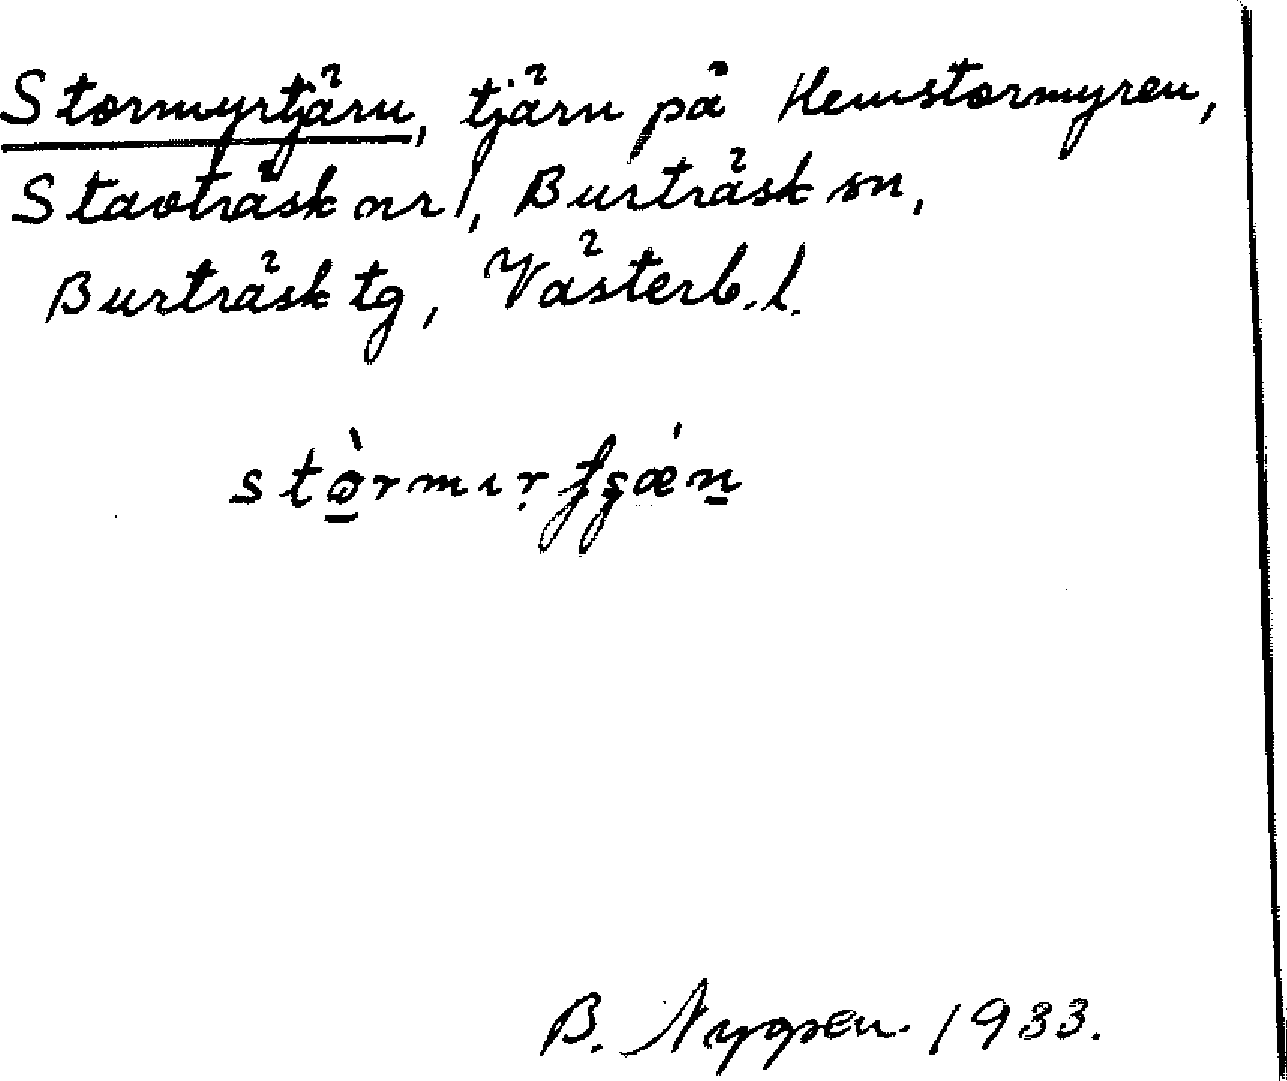 Stormyrtjärn, tjärn på Hemstormyren,
Stavträsk nr 1, Burträsk sn,
Burträsk tg, Västerb. l.
B. Nygren 1933.